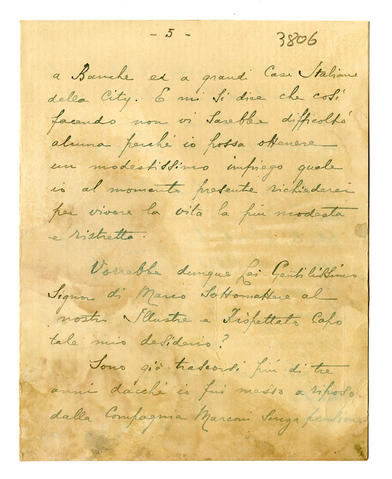 - 5 -
3806
a Banche ed a grandi Case Italiane
della City. E mi si dice che così
facendo non vi sarebbe difficoltà
alcuna perché io possa ottenere
un modestissimo impiego quale
io al momento presente richiederei
per vivere la vita la più modesta
e ristretta.
Vorrebbe dunque Lei Gentilissimo
Signor di Marco sottomettere al
nostro Illustre e Rispettato Capo
tale mio desiderio?
Sono già trascorsi più di tre
anni dacché io fui messo a riposo
dalla Compagnia Marconi senza pensione